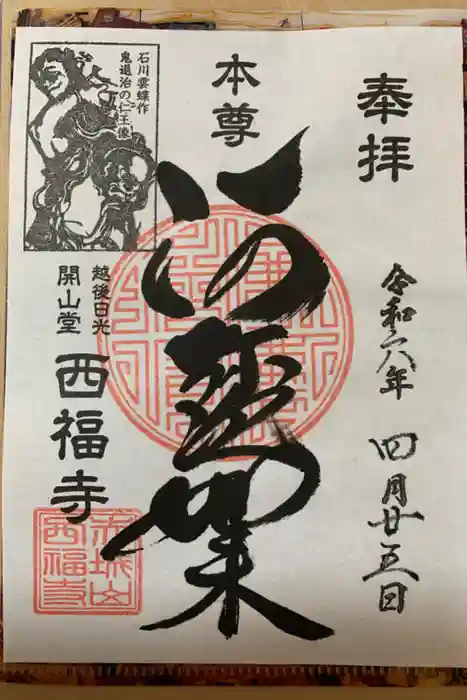 奉拝
令和六年 四月廿五日
本尊
阿弥陀如来
石川雲蝶作
鬼退治の仁王像
越後日光
開山堂
西福寺
赤城山
西福寺